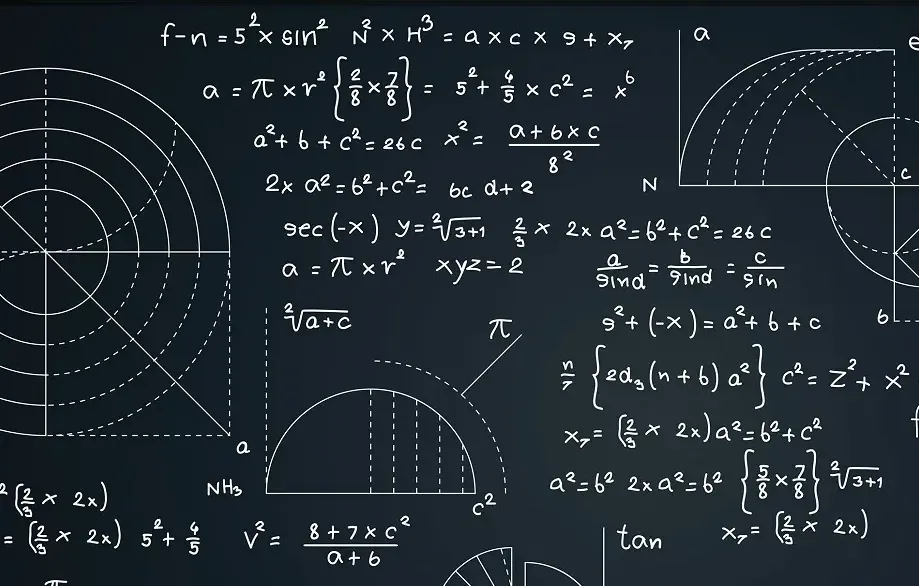 f-n = 5² x sin² N² x H³ = a x c x 9 + x₇
a
e
a = π x r² {2/8 x 7/8} = 5² + 4/5 x c² = x⁶
a² + b + c² = 26c x² = (a + b x c)/8²
2x a² = b² + c² = bc d + 2
N
c
sec (-x) y = ²√3+1 2/3 x 2x a² = b² + c² = 26c
a = π x r² xyz = 2 a/sind = b/sind = c/sin
²√a+c
π
9² + (-x) = a² + b + c
b
n/7 {2d₃ (n + b) a²} c² = z² + x²
x₇ = (2/3 x 2x) a² = b² + c²
a
a² = b² 2x a² = b² {5/8 x 7/8} ²√3+1
NH₃
c²
² (2/3 x 2x)
= (2/3 x 2x) 5² + 4/5 v² = (8 + 7 x c²)/(a + b)
tan
x₇ = (2/3 x 2x)